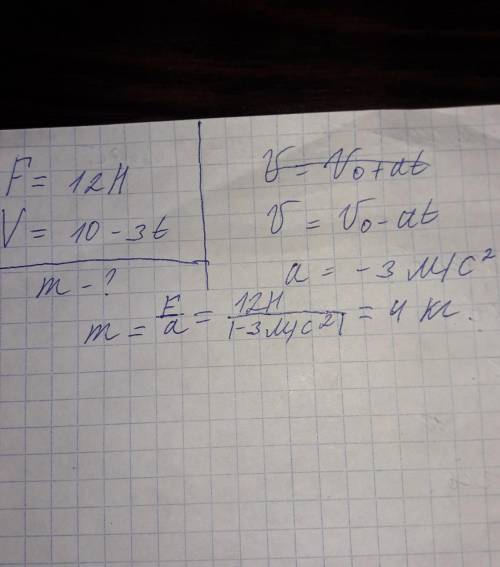 F = 12Н
V = 10 - 3t
m - ?
V = V₀ + at
V = V₀ - at
a = -3 М/С²
m = F/a = 12Н/|-3М/С²| = 4 кг.